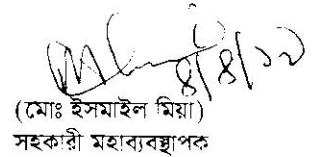 ৪/৪/১৩
(মোঃ ইসমাইল মিয়া)
সহকারী মহাব্যবস্থাপক